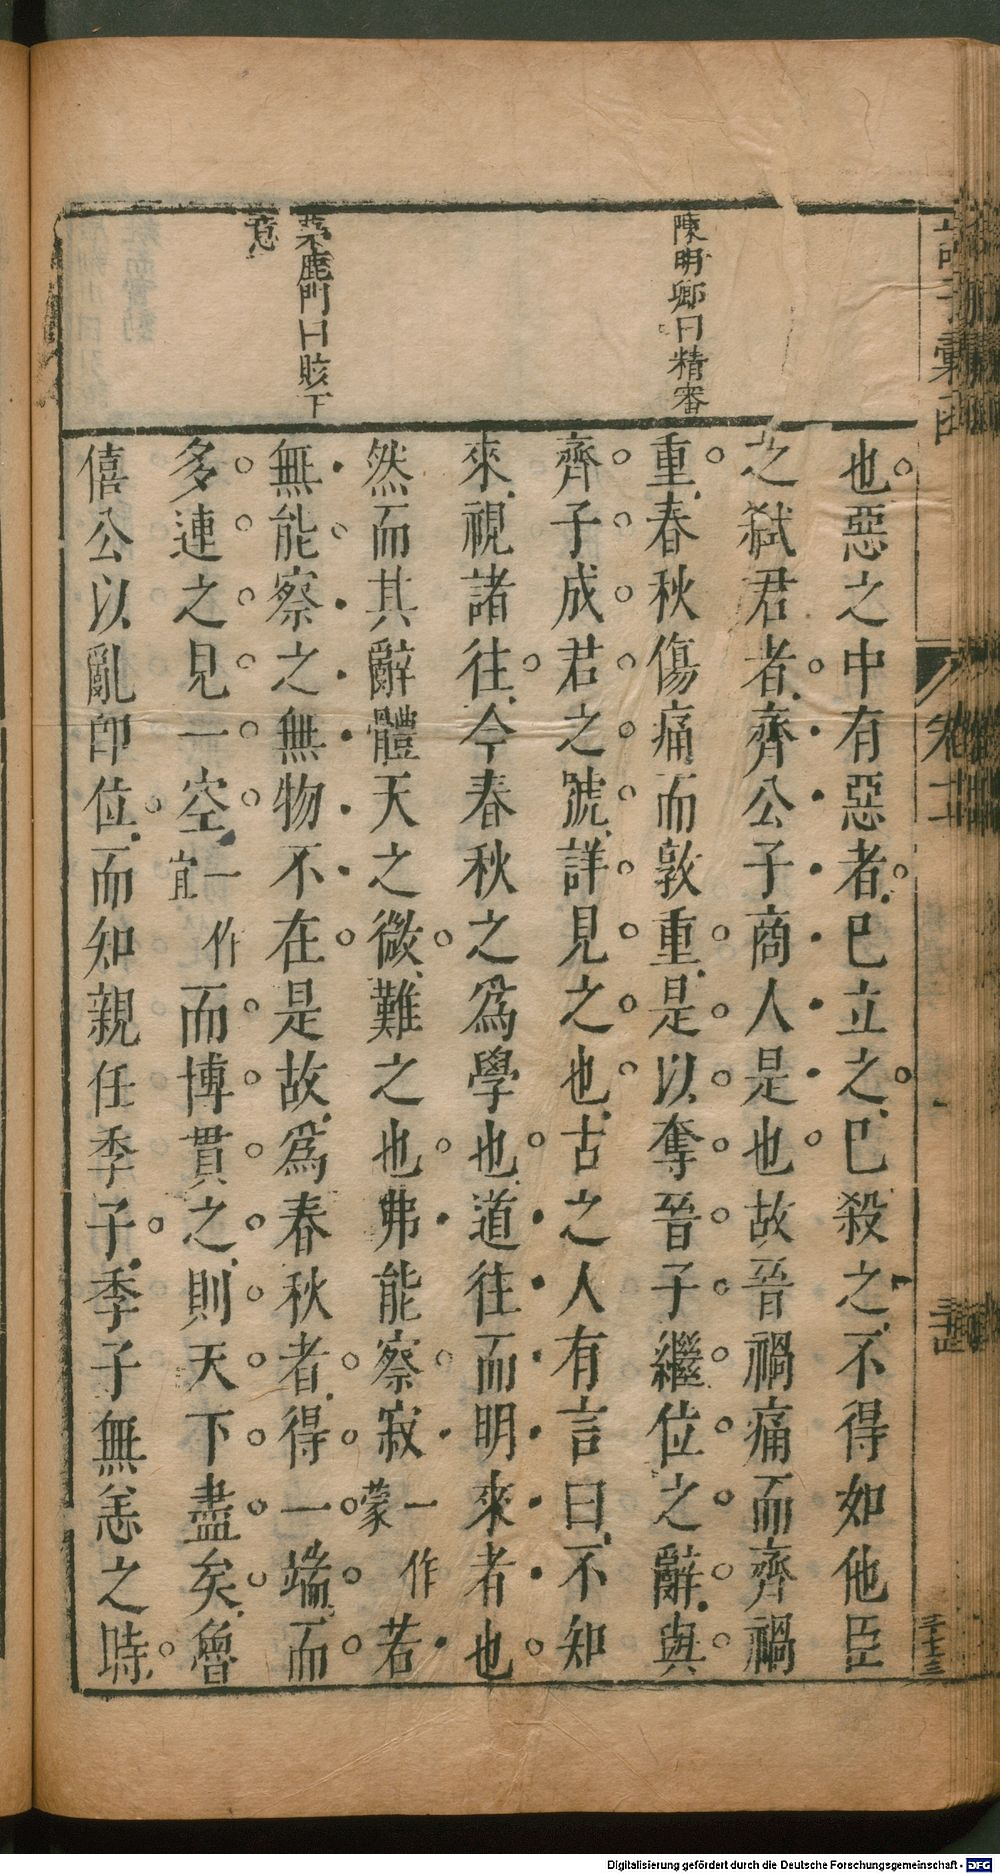 陳明卿曰精審
茅鹿門曰賅下
意
也惡之中有惡者已立之已殺之不得如他臣
之弑君者齊公子商人是也故晉禍痛而齊禍
重春秋傷痛而敦重是以奪晉子繼位之辭與
齊子成君之號詳見之也古之人有言曰不知
來視諸往今春秋之爲學也道往而明來者也
然而其辭體天之微難之也弗能察寂一作蒙若
無能察之無物不在是故爲春秋者得一端而
多連之見一空一作宜而博貫之則天下盡矣魯
僖公以亂卽位而知親任季子季子無恙之時
諸子彙函
卷十二
三十三
Digitalisierung gefördert durch die Deutsche Forschungsgemeinschaft - DFG